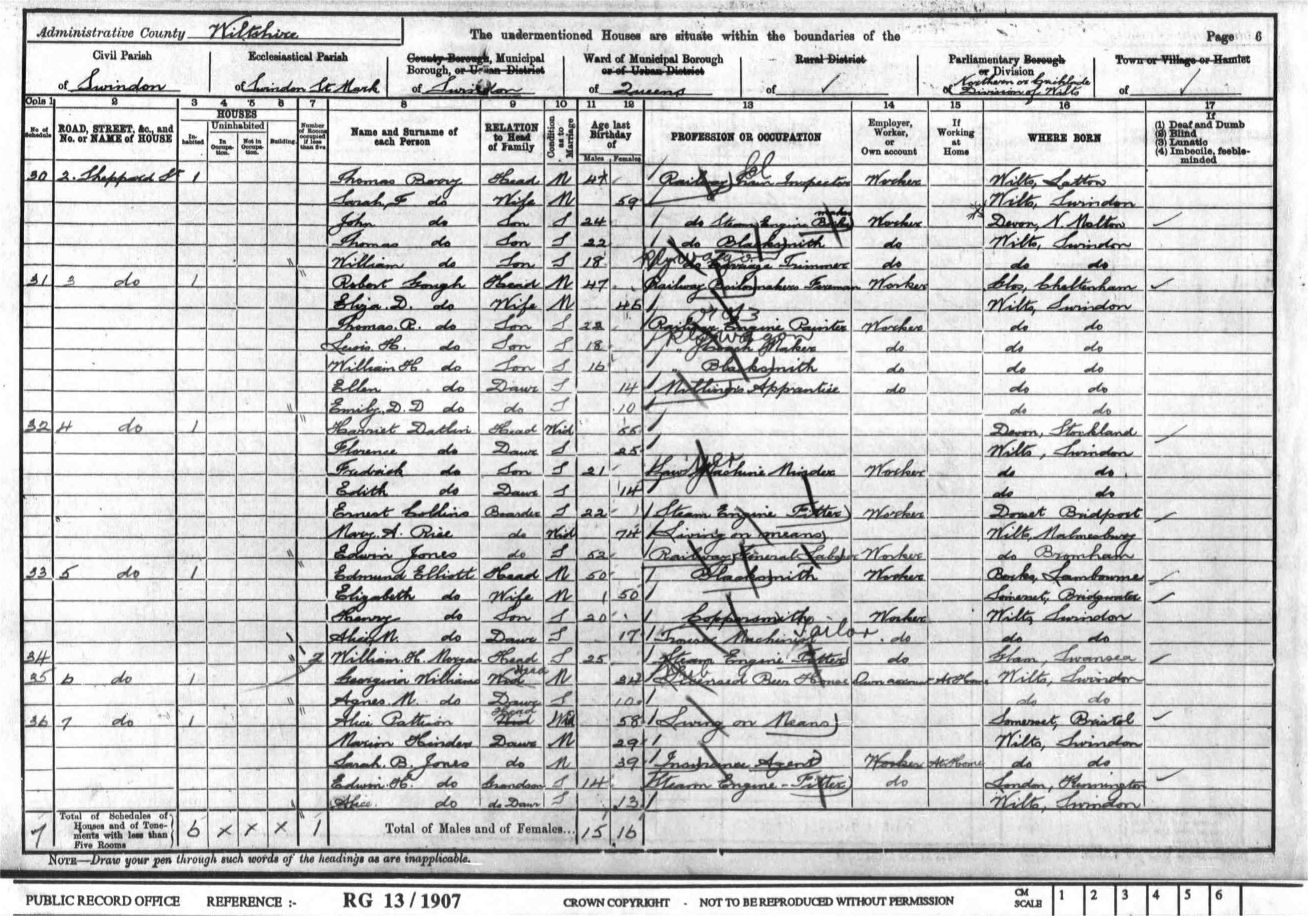 Administrative County Wiltshire
The undermentioned Houses are situate within the boundaries of the
Page 6
Civil Parish of Swindon
Ecclesiastical Parish of Swindon St Mark
County Borough, Municipal Borough, or Urban District of Swindon
Ward of Municipal Borough or of Urban District of Queens
Rural District of ✓
Parliamentary Borough or Division of Northern or Cricklade Division of Wilts
Town or Village or Hamlet of ✓
Cols 1 2 3 4 5 6 7 8 9 10 11 12 13 14 15 16 17
No. of Schedule
ROAD, STREET, &c., and No. or NAME of HOUSE
HOUSES
In-habited
Uninhabited
In Occupa-tion.
Not in Occupa-tion.
Building
Number of Rooms occupied if less than five
Name and Surname of each Person
RELATION to Head of Family
Condition as to Marriage
Age last Birthday of
Males Females
PROFESSION OR OCCUPATION
Employer, Worker, or Own account
If Working at Home
WHERE BORN
If (1) Deaf and Dumb (2) Blind (3) Lunatic (4) Imbecile, feeble-minded
30 2. Sheppard St 1 Thomas Head M 47 Railway Train Inspector Worker Wilts, Latton
Sarah, F. do Wife M 59 Wilts, Swindon
John do Son S 24 do Steam Engine maker Worker Devon, N. Molton
Thomas do Son S 22 do Blacksmith do Wilts, Swindon
William do Son S 18 Rly Wagon Trimmer do do do
31 3 do 1 Robert Gough Head M 47 Railway Boilermakers Foreman Worker Glos, Cheltenham
Eliza. D. do Wife M 46 Wilts, Swindon
Thomas. R. do Son S 22 Railway Engine Painter Worker do do
Lewis. H. do Son S 18 Rly Wagon " Coach Maker do do do
William H do Son S 16 " Blacksmith do do do
Ellen do Daur S 14 Milliners Apprentice do do do
Emily. D. D do do S 10 do do
32 4 do 1 Harriet Head Wid 55 Devon, Stockland
Florence do Daur S 25 Wilts, Swindon
Fredrick do Son S 21 Machine Minder Worker do do
Edith do Daur S 14 do do
Ernest Collins Boarder S 22 Steam Engine Fitter Worker Dorset Bridport
Mary. A. Rice do Wid 74 Living on means Wilts, Malmesbury
Edwin Jones do S 52 Railway General Labor Worker do Bromham
33 5 do 1 Edmund Elliott Head M 50 Blacksmith Worker Berks, Lambourne
Elizabeth do Wife M 50 Somerset, Bridgwater
Henry do Son S 20 Coppersmith Worker Wilts, Swindon
Alice M. do Daur S 17 Machinist Tailor do do do
34 7 William. H. Morgan Head S 25 Steam Engine Fitter do Glam, Swansea
35 6 do 1 Georgina Williams Head M 34 Licensed Beer House Own account At Home Wilts, Swindon
Agnes M. do Daur S 10 do do
36 7 do 1 Alice Pattison Head Wid 58 Living on Means Somerset, Bristol
Marion Hinder Daur M 29 Wilts, Swindon
Sarah. B. Jones do M 39 Insurance Agent Worker At Home do do
Edwin. H. do Grandson S 14 Steam Engine - Fitter do London, Kennington
Alice do do Daur S 13 Wilts, Swindon
7 Total of Schedules of Houses and of Tene-ments with less than Five Rooms 6 x x x 1 Total of Males and of Females... 15 16
NOTE—Draw your pen through such words of the headings as are inapplicable.
PUBLIC RECORD OFFICE REFERENCE :- RG 13/1907 CROWN COPYRIGHT - NOT TO BE REPRODUCED WITHOUT PERMISSION CM SCALE 1 2 3 4 5 6